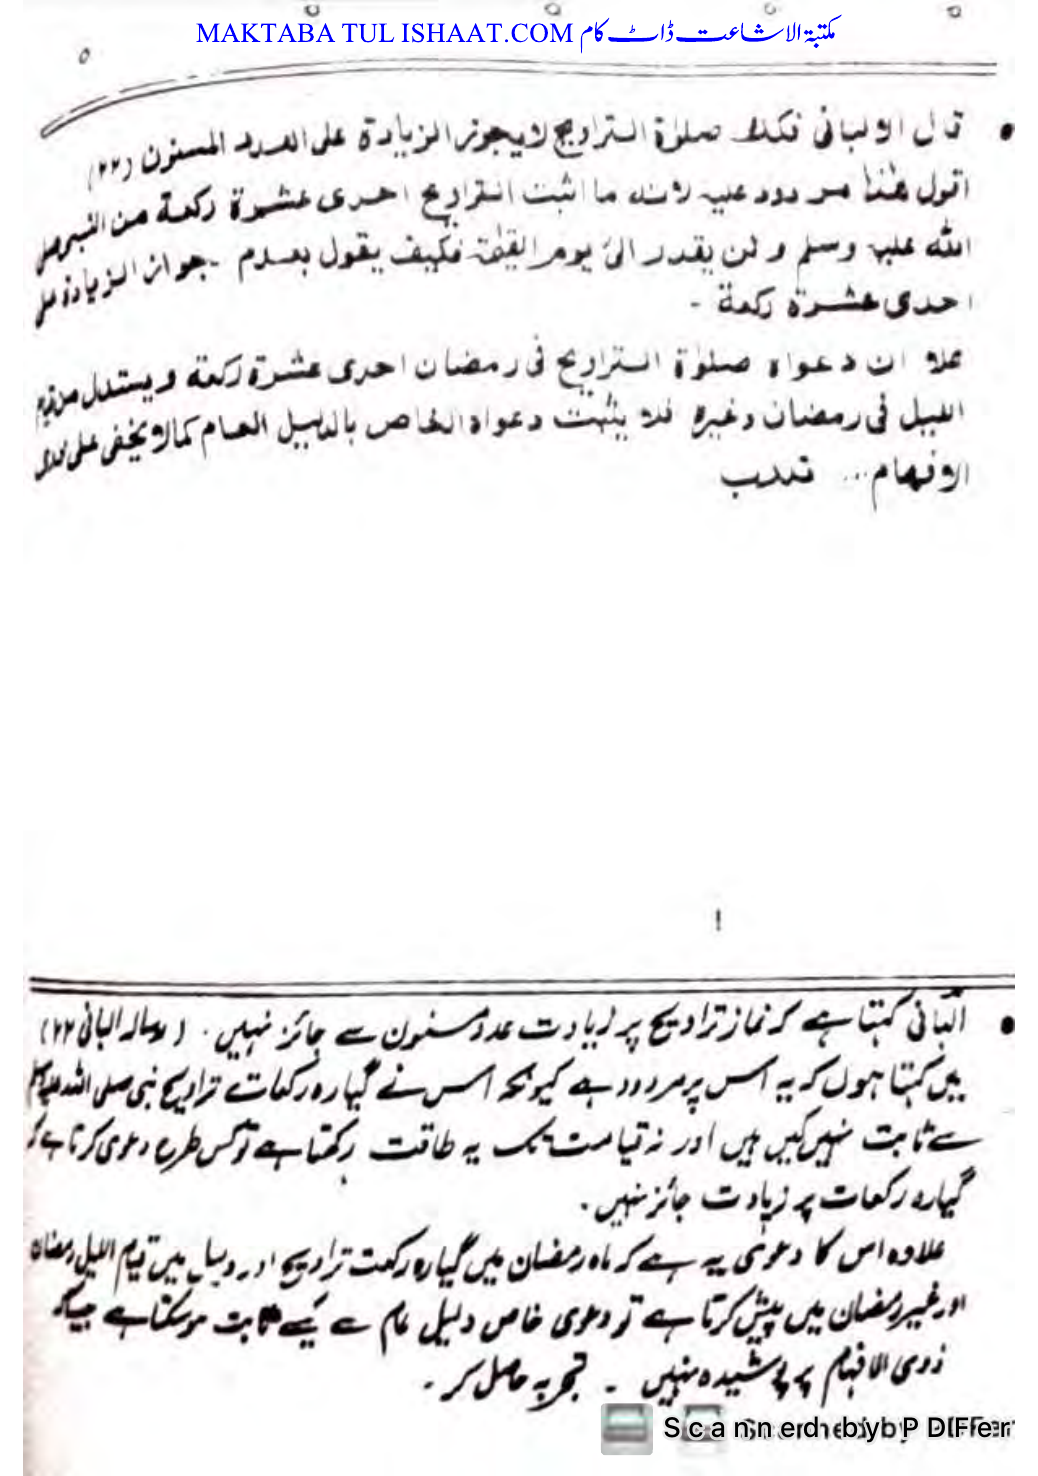 MAKTABA TUL ISHAAT.COM مکتبۃ الاشاعت ڈاٹ کام
قال الالبانی فكذلك صلوٰة التراويح لا يجوز الزيادة على العدد المسنون (۲۲)
اقول هٰذا مردود عليه لانه ما اثبت التراويح احدى عشرة ركعة من النبى صلى
الله عليه وسلم و لن يقدر الىٰ يوم القيٰمة فكيف يقول بعدم جواز الزيادة على
احدى عشرة ركعة -
علاوه ان دعواه صلوٰة التراويح فى رمضان احدى عشرة ركعة و يستدل من قيام
الليل فى رمضان وغيره فلا يثبت دعواه الخاص بالدليل العام كما لا يخفى على ذوى
الافهام ... تدرب
البانی کہتا ہے کہ نماز تراویح پر زیادت عدد مسنون سے جائز نہیں ۔ (رسالہ البانی ۲۲)
میں کہتا ہوں کہ یہ اس پر مردود ہے کیونکہ اس نے گیارہ رکعات تراویح نبی صلی اللہ علیہ وسلم
سے ثابت نہیں کیں ہیں اور نہ قیامت تک یہ طاقت رکھتا ہے تو کس طرح دعوی کرتا ہے کہ
گیارہ رکعات پر زیادت جائز نہیں ۔
علاوہ اس کا دعوٰی یہ ہے کہ ماہ رمضان میں گیارہ رکعت تراویح اور دلیل میں قیام اللیل رمضان
اور غیر رمضان میں پیش کرتا ہے تو دعوی خاص دلیل عام سے کیسے ثابت ہو سکتا ہے جیسا کہ
ذوی الافہام پر پوشیدہ نہیں ۔ تجربہ حاصل کر ۔
Scanned by PDFer